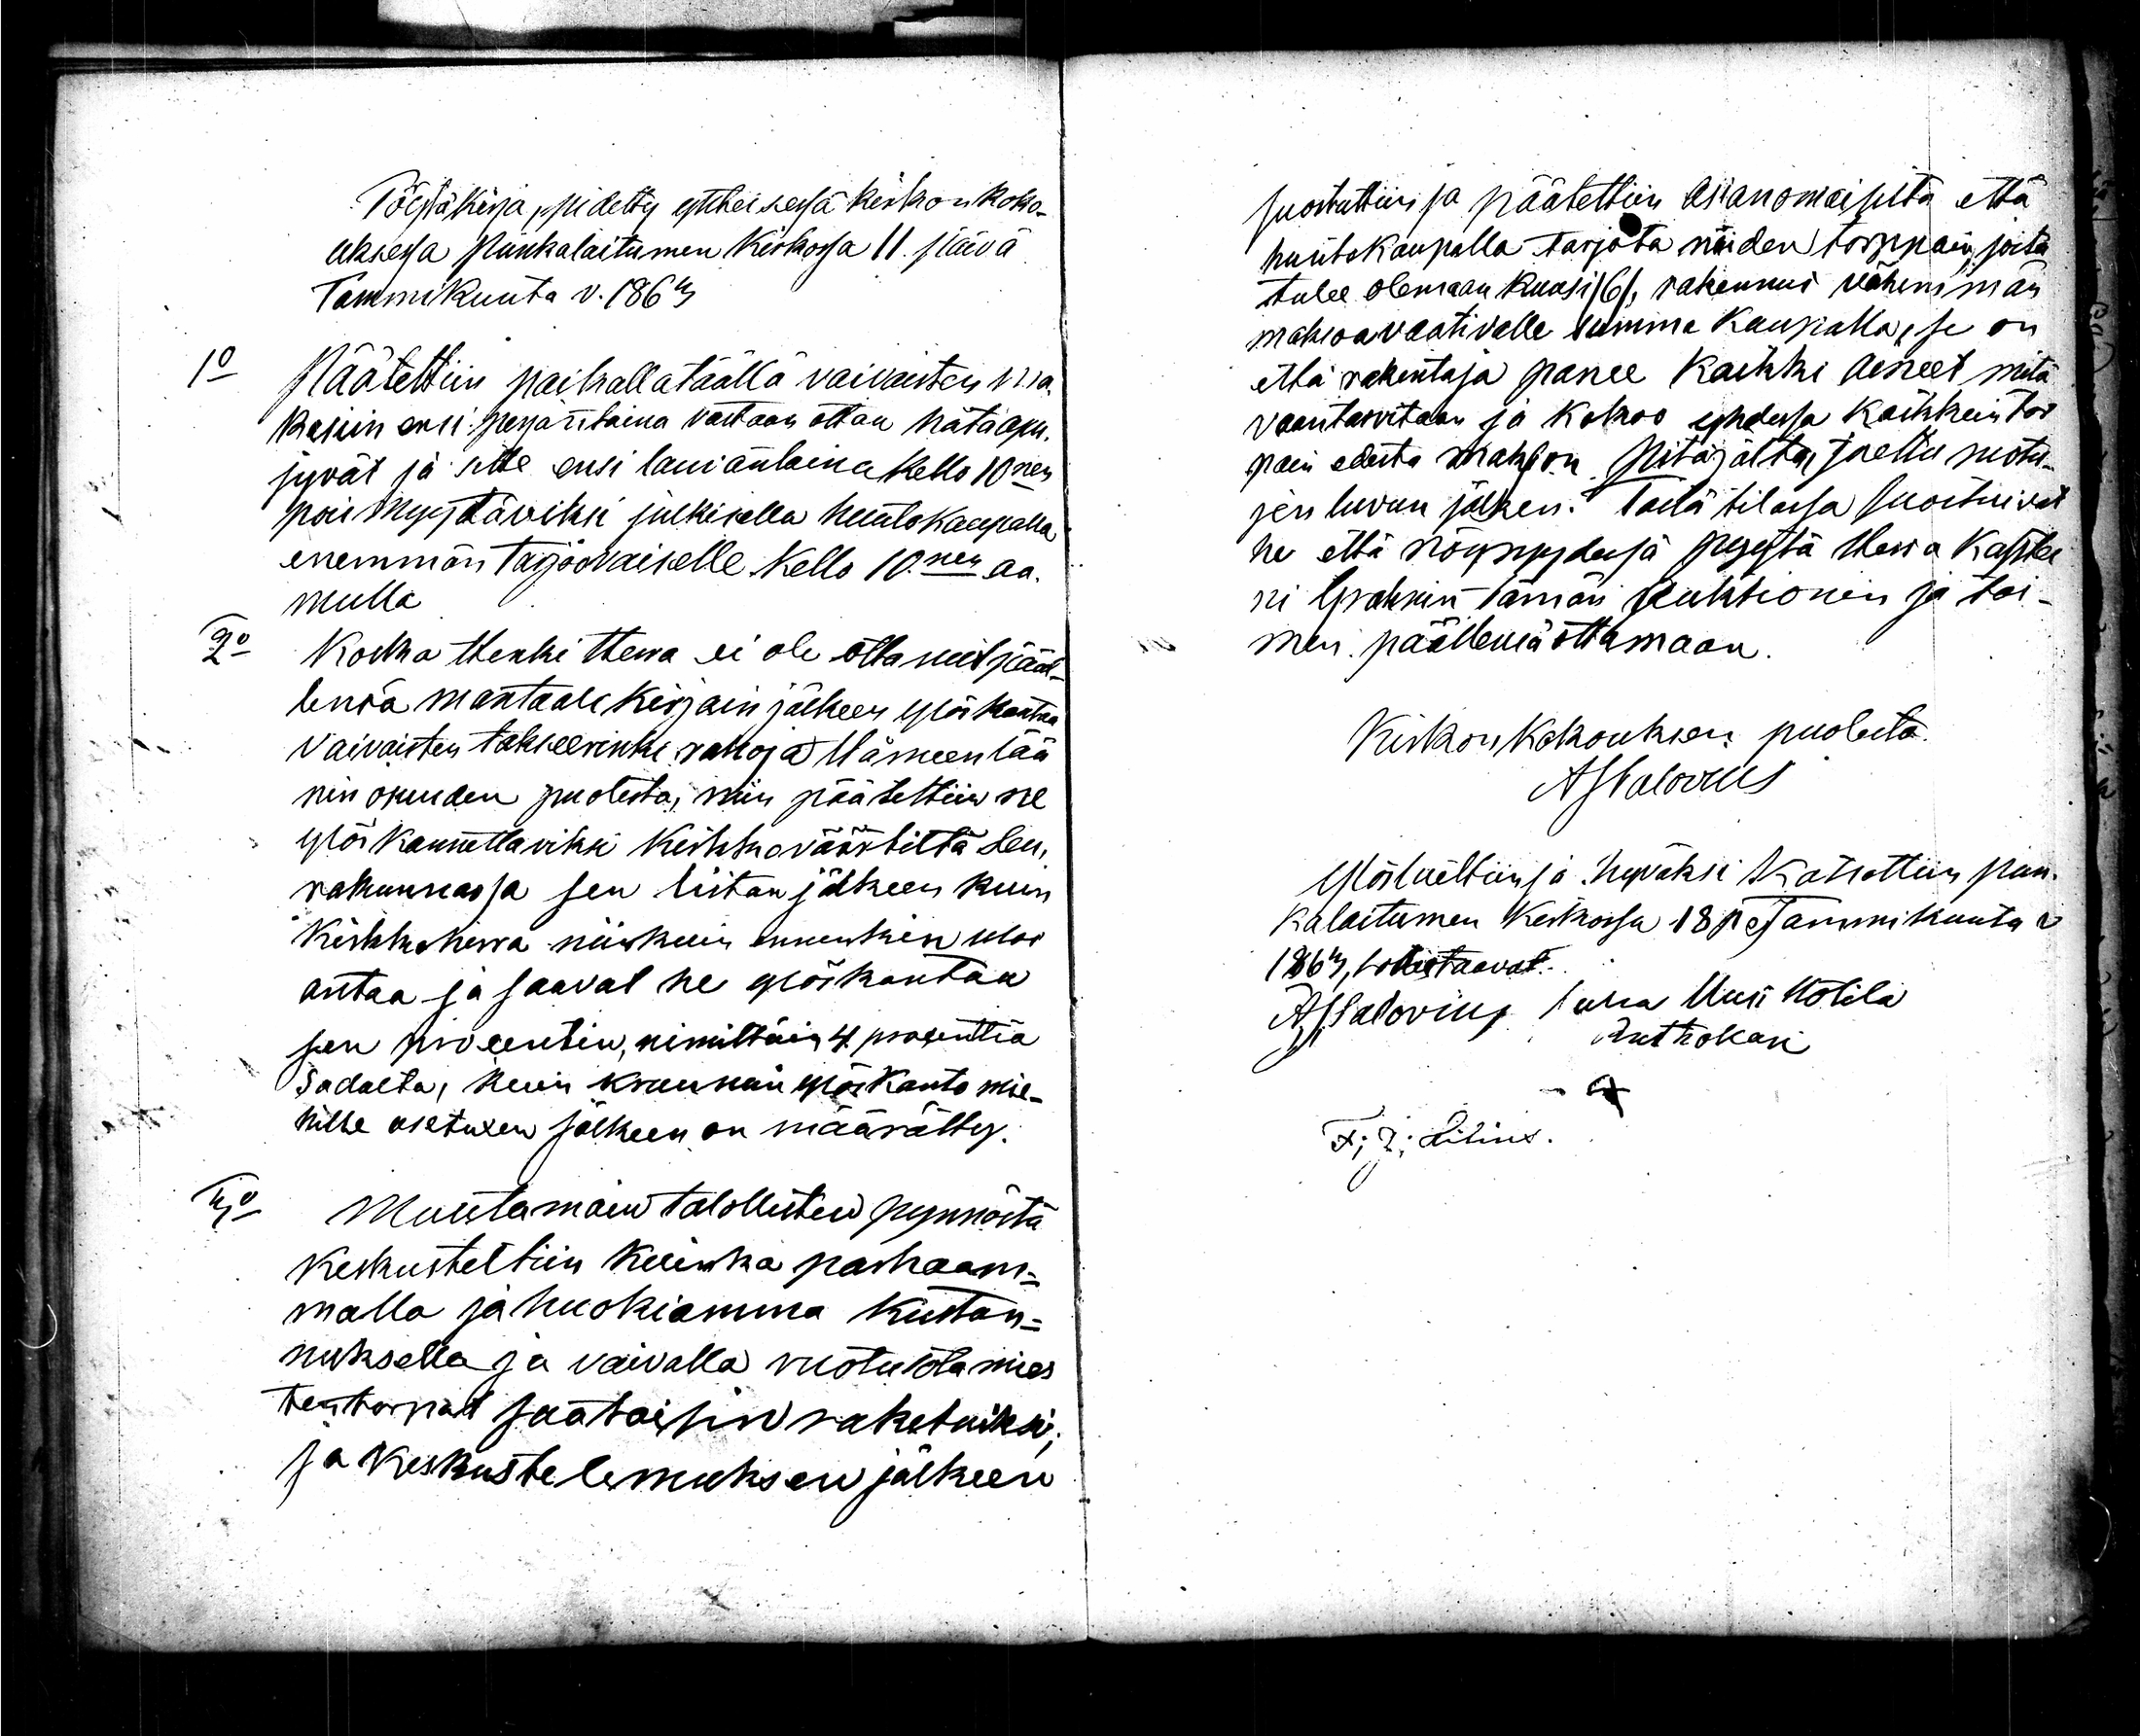 Pöytäkirja, pidetty yhteisessä kirkonkoko-
uksessa Punkalaitumen Kirkossa 11. päivä
Tammikuuta v. 1863
1o Päätettiin paikalla täällä vaivaisten ma-
kasiin ensi perjantaina vastaan ottaa hätäapu-
jyvät ja sitte ensi lauvantaina kello 10nen
pois myytäviksi julkisella huutokaupalla
enemmän tarjoovaiselle kello 10.nen aa-
mulla
2o Koska Henki Herra ei ole ottanut pääl-
lensä mantaali kirjain jälkeen ylöskantaa
Vaivaisten takseerinki rahoja Hämeen lää
nin osuuden puolesta, niin päätettiin ne
ylöskannettaviksi Kirkkoväärtiltä Seu-
rakunnassa sen listan jälkeen kuin
Kirkkoherra niinkuin ennenkin ulos
antaa ja saavat he ylöskantaa
sen prosentin, nimittäin 4 prosenttia
Sadalta, kuin kruunun ylöskanto mie-
hille asetuxen jälkeen on määrätty.
3o Muutamain talollisten pynnöstä
keskusteltiin kuinka parhaam-
malla ja huokiamma kustan-
nuksella ja vaivalla ruotusotamies
ten torpat saataisiin raketuiksi;
ja keskustelemuksen jälkeen
suostuttiin ja päätettiin asianomaisilta että
huutokaupalla tarjota näiden torppain, joita
tulee olemaan kuusi /6/, rakennus vähemmän
maksoa vaativalle summa kaupalla, se on
että rakentaja panee kaikki aineet mitä
vaan tarvitaan ja kokoo yhdessä kaikkein tor
pain edestä maxon Pitäjältä, jaettu ruotu-
jen luvun jälken. Tällä tilassa suostuivat
he että nöyryydessä pyytä Herra Kaptei
ni Grahnin tämän auktionin ja toi-
men päällensä ottamaan.
Kirkon Kokouksen puolesta.
A J Salovius
Ylösluettiin ja hyväksi katsottiin Pun-
kalaitumen Kirkossa 18 p Tammikuuta v
1863, todistaavat.
A J Salovius Juha Uusi Kotila
F; J; Lilius.